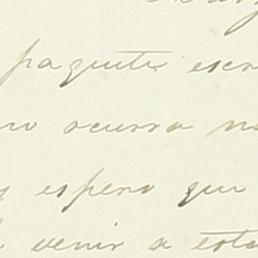 paquete escri
no ocurra no
y espero que
venir a esta